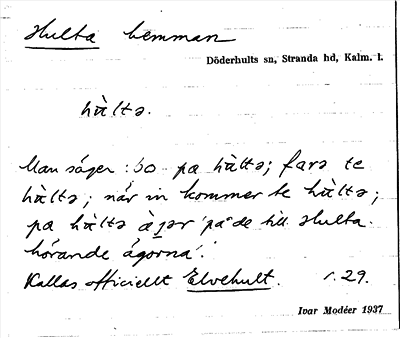 Hulta hemman
Döderhults sn, Stranda hd, Kalm. l.
hùltə.
Man säger: bo pa hùltə; farə te
hùltə; når in kommer te hùltə;
pa hùltə àjər 'på de till Hulta
hörande ägorna'.
Kallas officiellt Elvehult. r. 29.
Ivar Modéer 1937